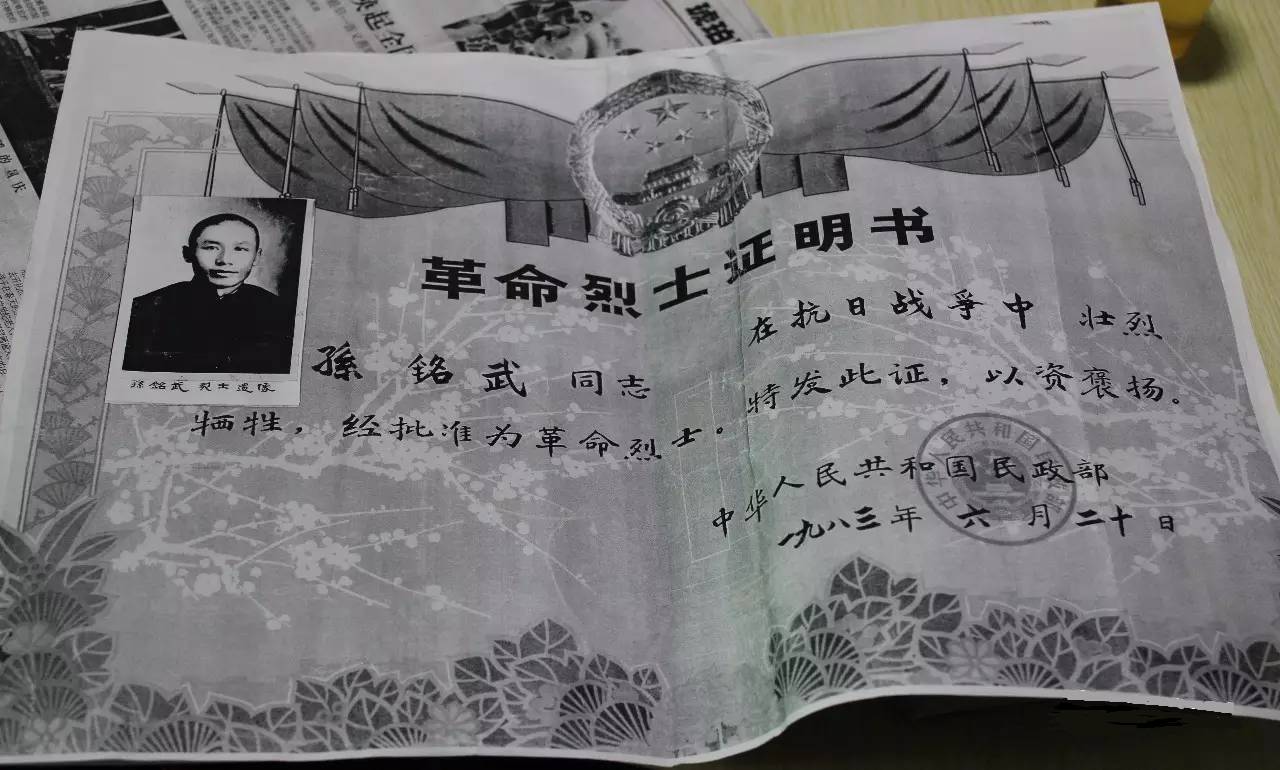 唤起全国
琥珀
革命烈士证明书
孫铭武 烈士遗像
孫铭武同志在抗日战争中壮烈
牺牲，经批准为革命烈士。特发此证，以资褒扬。
中华人民共和国民政部
一九八三年六月二十日
中华人民共和国民政部